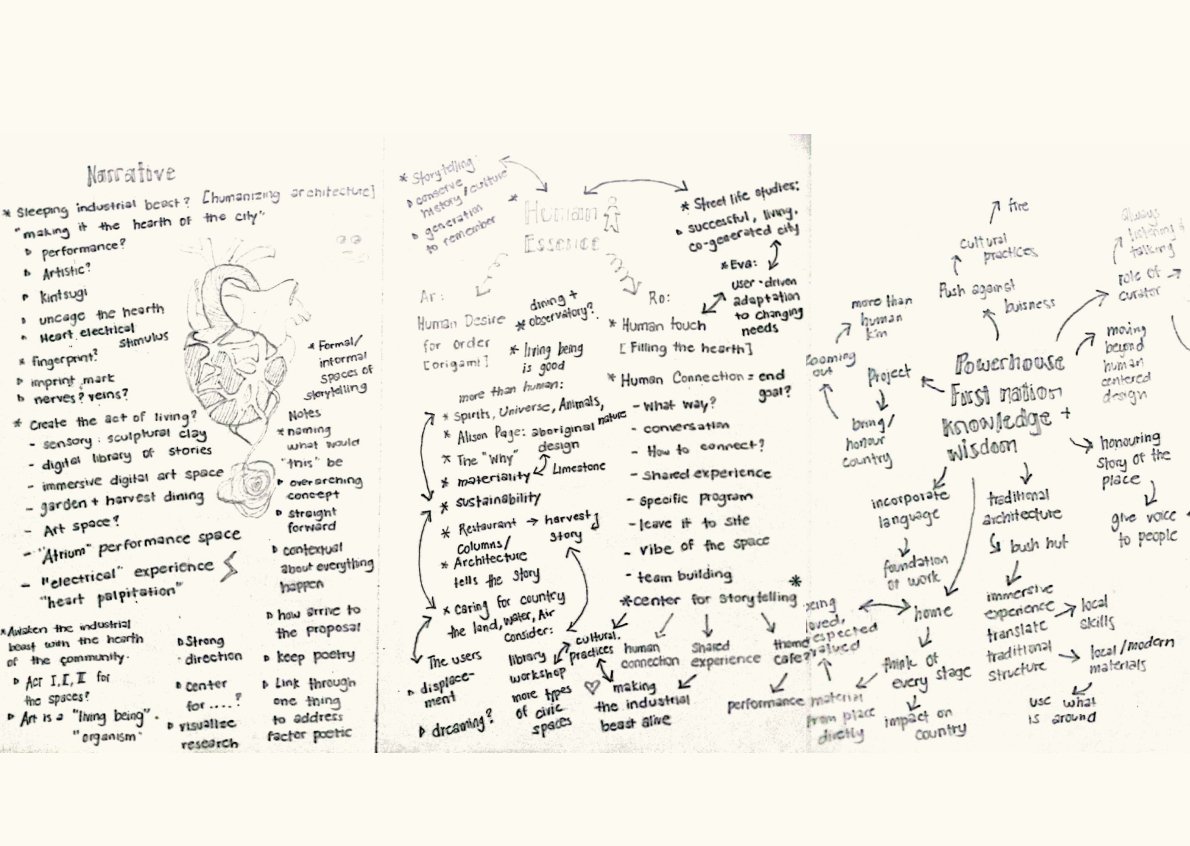 Narrative
* Sleeping industrial beast? [humanizing architecture]
"making it the hearth of the city"
performance?
Artistic?
kintsugi
uncage the hearth
Heart electrical
stimulus
* fingerprint?
imprint, mark
nerves? veins?
* Create the act of living?
- sensory: sculptural clay
- digital library of stories
- immersive digital art space
- garden + harvest dining
- Art space?
- "Atrium" performance space
- "electrical" experience
"heart palpitation"
* Formal/
informal
spaces of
storytelling
Notes
* naming
what would
"this" be
overarching
concept
straight
forward
contextual
about everything
happen
how arrive to
the proposal
keep poetry
Link through
one thing
to address
factor poetic
* Awaken the industrial
beast with the hearth
of the community.
Act I, II, III for
the spaces?
Art is a "living being".
"organism"
Strong
direction
center
for ....?
visualize
research
* Storytelling:
conserve
history/culture
generation
to remember
* Human
Essence
* Street life studies:
successful, living,
co-generated city
* Eva:
user-driven
adaptation
to changing
needs
Ar:
Human Desire
for order
[origami]
dining +
* observatory?
* living being
is good
Ro:
* Human touch
[Filling the hearth]
* Human Connection = end
goal?
- What way?
- conversation
- How to connect?
- Shared experience
- specific program
- leave it to site
- vibe of the space
- team building
more than human:
* Spirits, Universe, Animals,
nature
* Alison Page: aboriginal
design
* The "Why"
* materiality
Limestone
* sustainability
* Restaurant → harvest
story
Columns/
* Architecture
tells the story
* caring for country
the land, water, Air
Consider:
The users
displace-
ment
dreaming?
library
workshop
more types
of civic
spaces
* center for storytelling
*
cultural
practices
human
connection
Shared
experience
theme
cafe?
making
the industrial
beast alive
performance
Powerhouse
First nation
knowledge +
wisdom
fire
cultural
practices
Push against
buisness
always
listening &
talking
role of
curator
moving
beyond
human
centered
design
more than
human
kin
zooming
out
Project
bring/
honour
country
honouring
story of the
place
give voice
to people
incorporate
language
foundation
of work
traditional
architecture
bush hut
immersive
experience
translate
traditional
structure
local
skills
local/modern
materials
use what
is around
home
respected
valued
think of
every stage
impact on
country
material
from place
directly